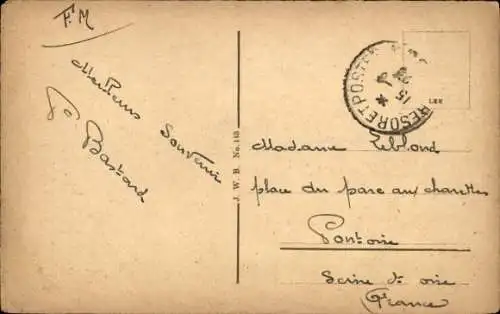 F.M
Meilleurs Souvenir
P Bastard
J. W. B. No. 145
TRESOR ET POSTES
15
L&K
Madame Leblond
place du parc aux charettes
Pontoise
Seine et oise
(France)